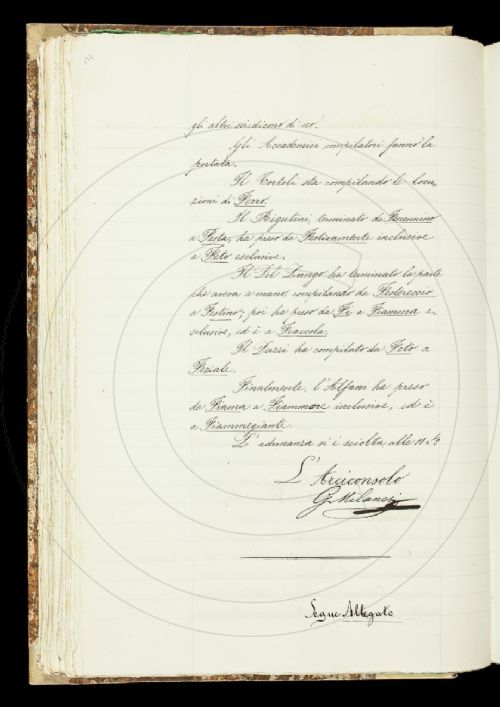 gli altri si dicono di no.
Gli Accademici compilatori fanno la
portata.
Il Tortoli sta compilando le locu-
zioni di Ferro.
Il Rigutini, terminato da Fescennino
a Festa, ha preso da Festivamente inclusive
a Feto esclusive.
Il Del Lungo ha terminato la parte
che aveva a mano, compilando da Festereccio
a Festino; poi ha preso da Fi a Fiamma e-
sclusive, ed è a Fiaccola.
Il Dazzi ha compilato da Feto a
Feziale.
Finalmente, l'Alfani ha preso
da Fiama a Fiammore inclusive, ed è
a Fiammegiante.
L'adunanza si è sciolta alle
L'Arciconsolo
G. Milanesi
Segue Allegato